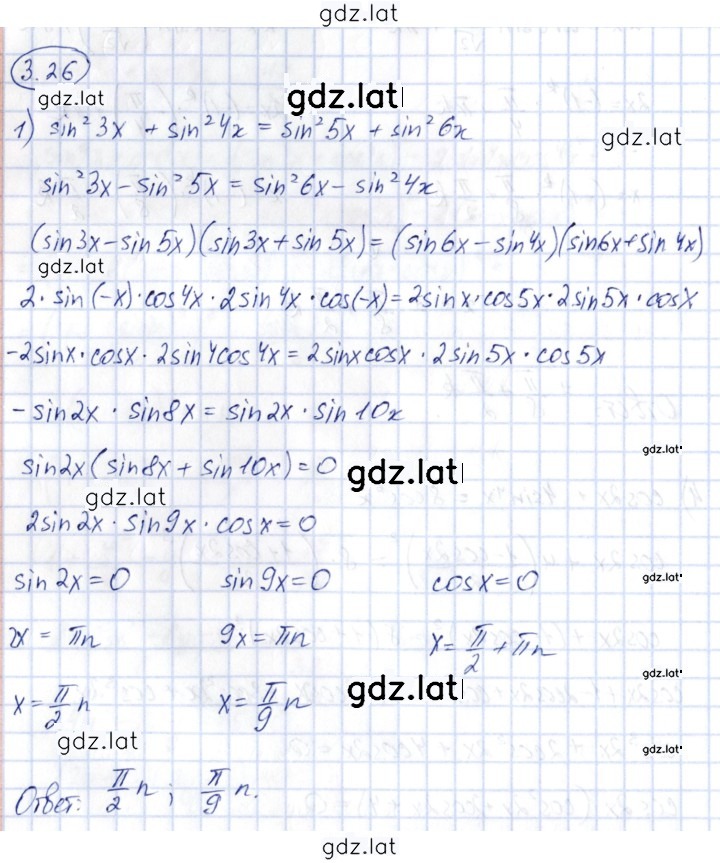 gdz.lat
3.26
gdz.lat
gdz.lat
1) sin²3x + sin²4x = sin²5x + sin²6x
gdz.lat
sin²3x - sin²5x = sin²6x - sin²4x
(sin3x - sin5x)(sin3x + sin5x) = (sin6x - sin4x)(sin6x + sin4x)
gdz.lat
2 · sin(-x) · cos4x · 2sin4x · cos(-x) = 2sinx · cos5x · 2sin5x · cosx
-2sinx · cosx · 2sin4cos4x = 2sinxcosx · 2sin5x · cos5x
-sin2x · sin8x = sin2x · sin10x
gdz.lat
sin2x(sin8x + sin10x) = 0
gdz.lat
gdz.lat
2sin2x · sin9x · cosx = 0
sin2x = 0 sin9x = 0 cosx = 0
gdz.lat
x = πn 9x = πn x = π/2 + πn
gdz.lat
x = π/2 n x = π/9 n
gdz.lat
gdz.lat
gdz.lat
Ответ: π/2 n; π/9 n.
gdz.lat